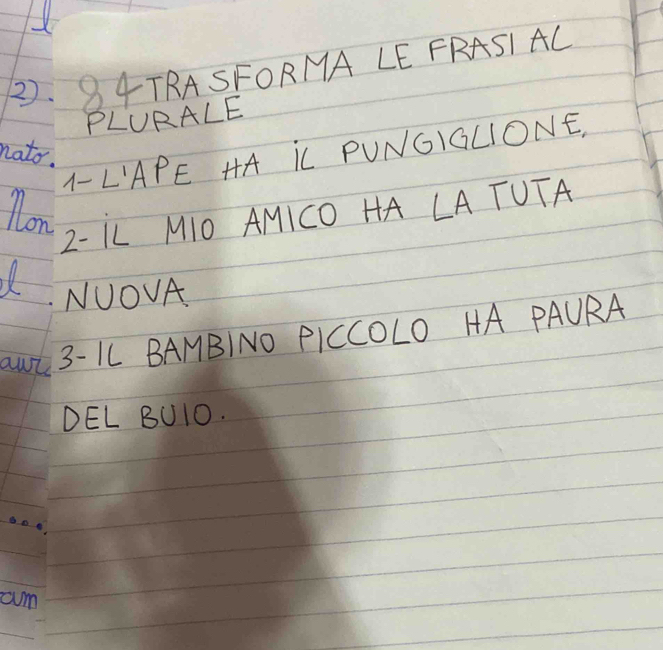 84 TRASFORMA LE FRASI AL
PLURALE
1- L'APE HA IL PUNGIGLIONE.
2- IL MIO AMICO HA LA TUTA
NUOVA.
3- IL BAMBINO PICCOLO HA PAURA
DEL BUIO.
2).
nato.
Non